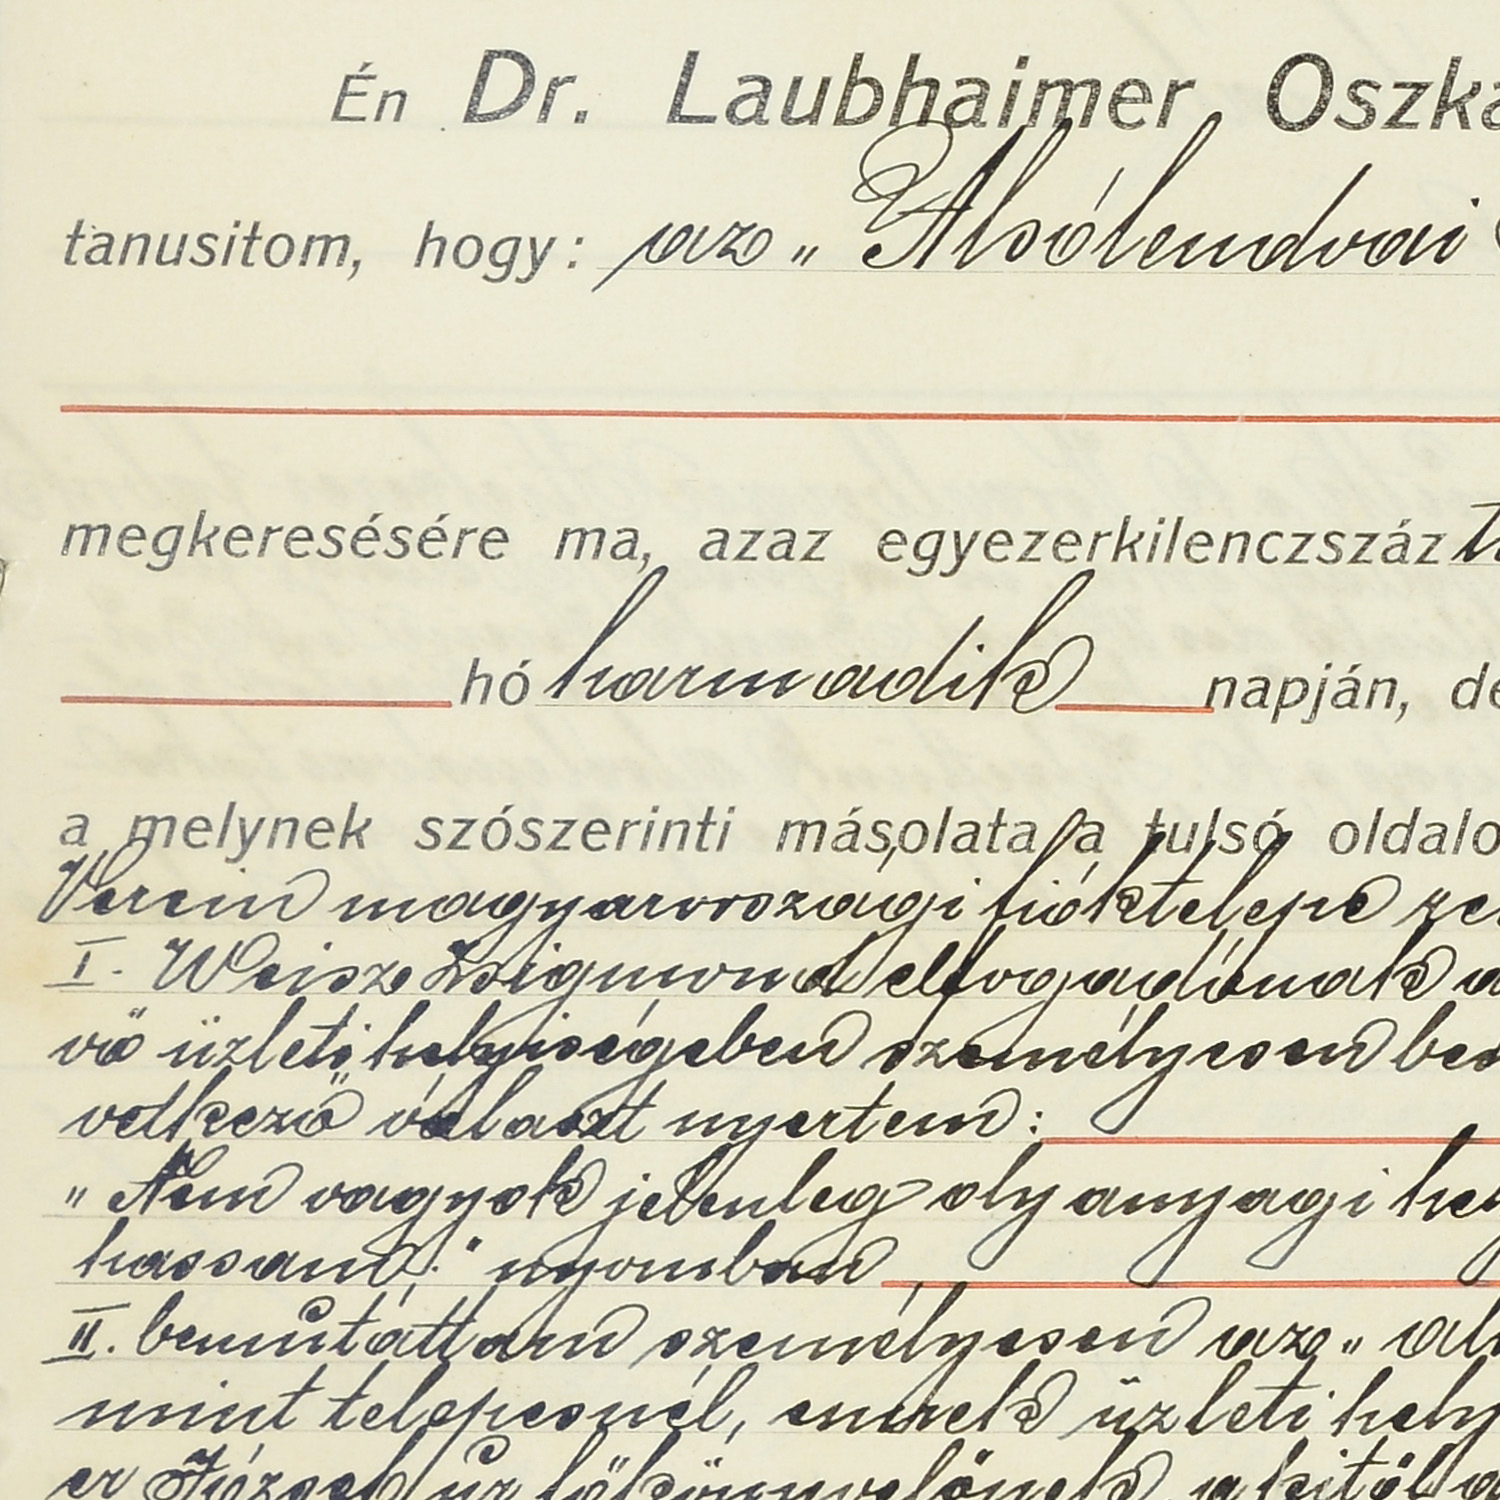 Én Dr. Laubhaimer Oszká
tanusitom, hogy: az „Alsólendvai
megkeresésére ma, azaz egyezerkilenczszáz
hó harmadik napján, de
a melynek szószerinti másolata a tulsó oldalo
Verein magyarországi fióktelepe
I. Weisz Zsigmond elfogadónak a
vő üzleti helyiségeben személyesen be
vetkező választ nyertem:
„Nem vagyok jelenleg oly anyagi hely
hassam." nyomban
II. bemutáttam személyesen az „al
mint telepesnél, ennek üzleti hely
er József úr főkönyvelőnek, a kitől a